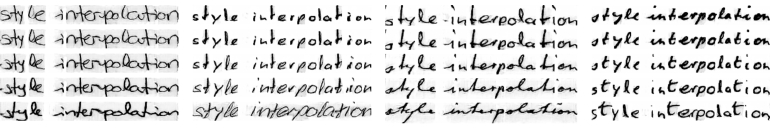 style interpolation style interpolation style interpolation style interpolation
style interpolation style interpolation style interpolation style interpolation
style interpolation style interpolation style interpolation style interpolation
style interpolation style interpolation style interpolation style interpolation
style interpolation style interpolation style interpolation style interpolation